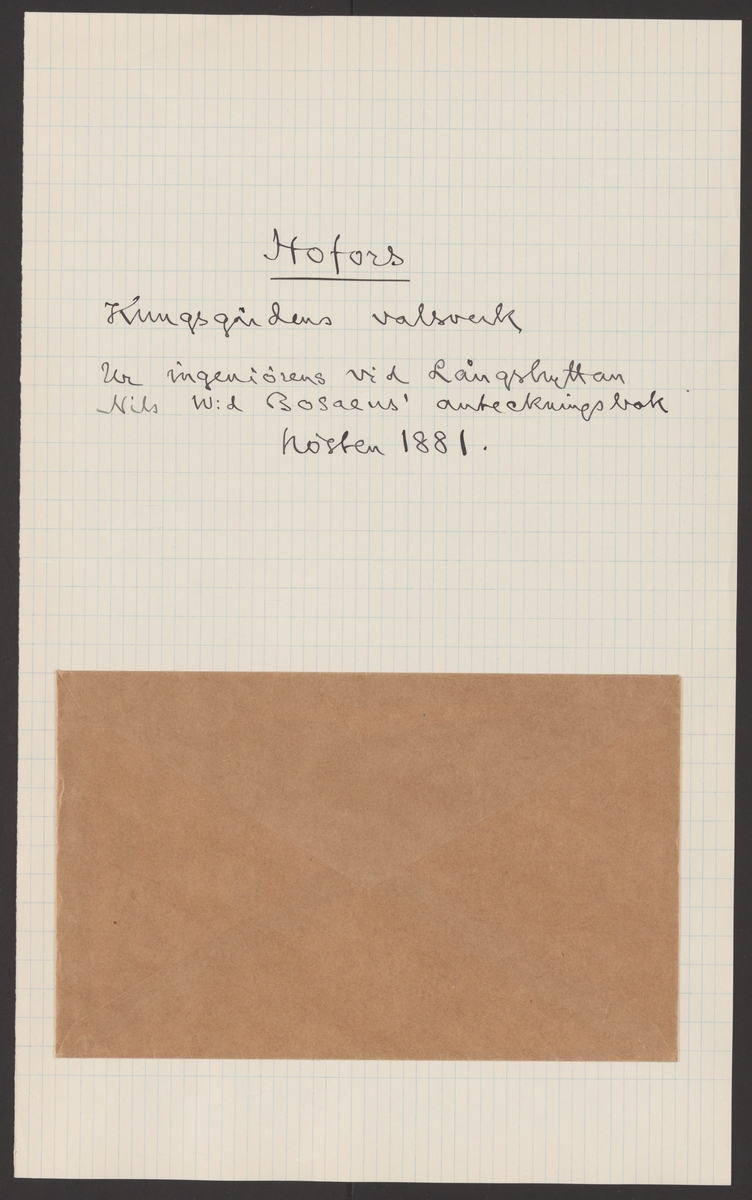 Hofors
Kungsgårdens valsverk
Ur ingeniörens vid Långshyttan
Nils W:d Bosaeus' anteckningsbok
hösten 1881.